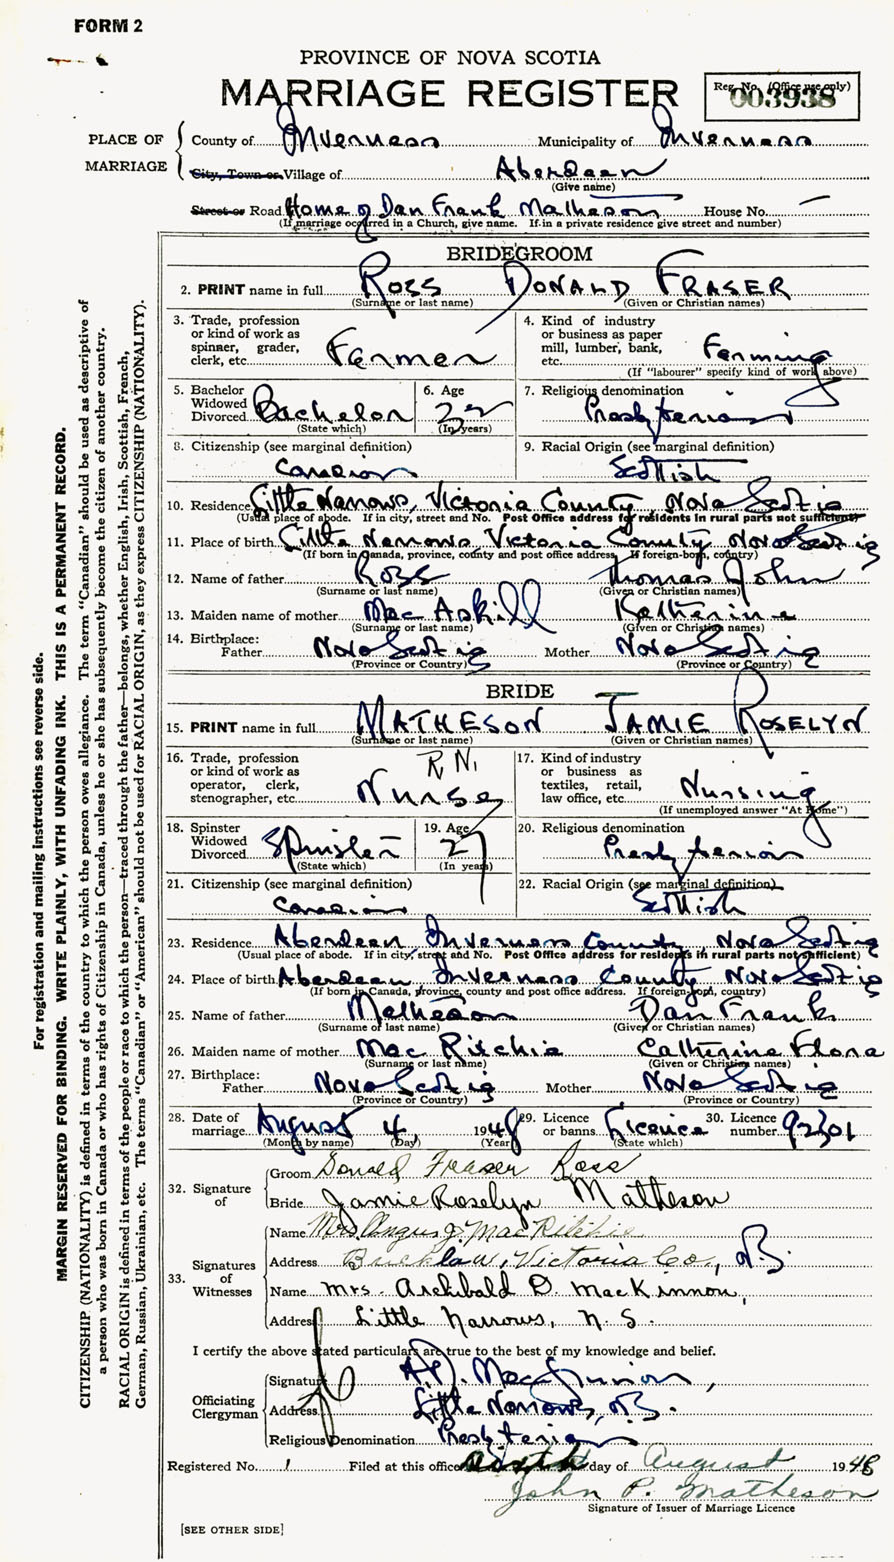 FORM 2
PROVINCE OF NOVA SCOTIA
MARRIAGE REGISTER
Reg. No. (Office use only)
003938
PLACE OF MARRIAGE
County of Inverness Municipality of Inverness
City, Town or Village of Aberdeen
(Give name)
Street or Road Home of Dan Frank Matheson House No. —
(If marriage occurred in a Church, give name. If in a private residence give street and number)
BRIDEGROOM
2. PRINT name in full ROSS DONALD FRASER
(Surname or last name) (Given or Christian names)
3. Trade, profession or kind of work as spinner, grader, clerk, etc. Farmer
4. Kind of industry or business as paper mill, lumber, bank, etc. Farming
(If "labourer" specify kind of work above)
5. Bachelor Widowed Divorced Bachelor
(State which)
6. Age
(In years)
7. Religious denomination Presbyterian
8. Citizenship (see marginal definition) Canadian
9. Racial Origin (see marginal definition) Scottish
10. Residence Little Narrows, Victoria County Nova Scotia
(Usual place of abode. If in city, street and No. Post Office address for residents in rural parts not sufficient)
11. Place of birth Little Narrows Victoria County Nova Scotia
(If born in Canada, province, county and post office address. If foreign-born, country)
12. Name of father Ross Thomas John
(Surname or last name) (Given or Christian names)
13. Maiden name of mother MacAskill Katherine
(Surname or last name) (Given or Christian names)
14. Birthplace: Father Nova Scotia Mother Nova Scotia
(Province or Country) (Province or Country)
BRIDE
15. PRINT name in full MATHESON JAMIE ROSELYN
(Surname or last name) (Given or Christian names)
16. Trade, profession or kind of work as operator, clerk, stenographer, etc. R.N. Nurse
17. Kind of industry or business as textiles, retail, law office, etc. Nursing
(If unemployed answer "At Home")
18. Spinster Widowed Divorced Spinster
(State which)
19. Age 27
(In years)
20. Religious denomination Presbyterian
21. Citizenship (see marginal definition) Canadian
22. Racial Origin (see marginal definition) Scottish
23. Residence Aberdeen, Inverness County Nova Scotia
(Usual place of abode. If in city, street and No. Post Office address for residents in rural parts not sufficient)
24. Place of birth Aberdeen Inverness County Nova Scotia
(If born in Canada, province, county and post office address. If foreign-born, country)
25. Name of father Matheson Dan Frank
(Surname of last name) (Given or Christian names)
26. Maiden name of mother MacRitchie Catherine Flora
(Surname or last name) (Given or Christian names)
27. Birthplace: Father Nova Scotia Mother Nova Scotia
(Province or Country) (Province or Country)
28. Date of marriage August 4, 1948
(Month by name) (Day) (Year)
29. Licence or banns Licence
(State which)
30. Licence number 92301
32. Signature of
Groom Donald Fraser Ross
Bride Jamie Roselyn Matheson
33. Signatures of Witnesses
Name Mrs. Angus J. MacRitchie
Address Bucklaw, Victoria Co., N.S.
Name Mrs. Archibald D. MacKinnon,
Address Little Narrows, N.S.
I certify the above stated particulars are true to the best of my knowledge and belief.
Officiating Clergyman
Signature A.D. MacKinnon,
Address Little Narrows, N.S.
Religious Denomination Presbyterian
Registered No. 1 Filed at this office day of August 1948
John P. Matheson
Signature of Issuer of Marriage Licence
[SEE OTHER SIDE]
For registration and mailing instructions see reverse side.
MARGIN RESERVED FOR BINDING. WRITE PLAINLY, WITH UNFADING INK. THIS IS A PERMANENT RECORD.
CITIZENSHIP (NATIONALITY) is defined in terms of the country to which the person owes allegiance. The term "Canadian" should be used as descriptive of
a person who was born in Canada or who has rights of Citizenship in Canada, unless he or she has subsequently become the citizen of another country.
RACIAL ORIGIN is defined in terms of the people or race to which the person—traced through the father—belongs, whether English, Irish, Scottish, French,
German, Russian, Ukrainian, etc. The terms "Canadian" or "American" should not be used for RACIAL ORIGIN, as they express CITIZENSHIP (NATIONALITY).